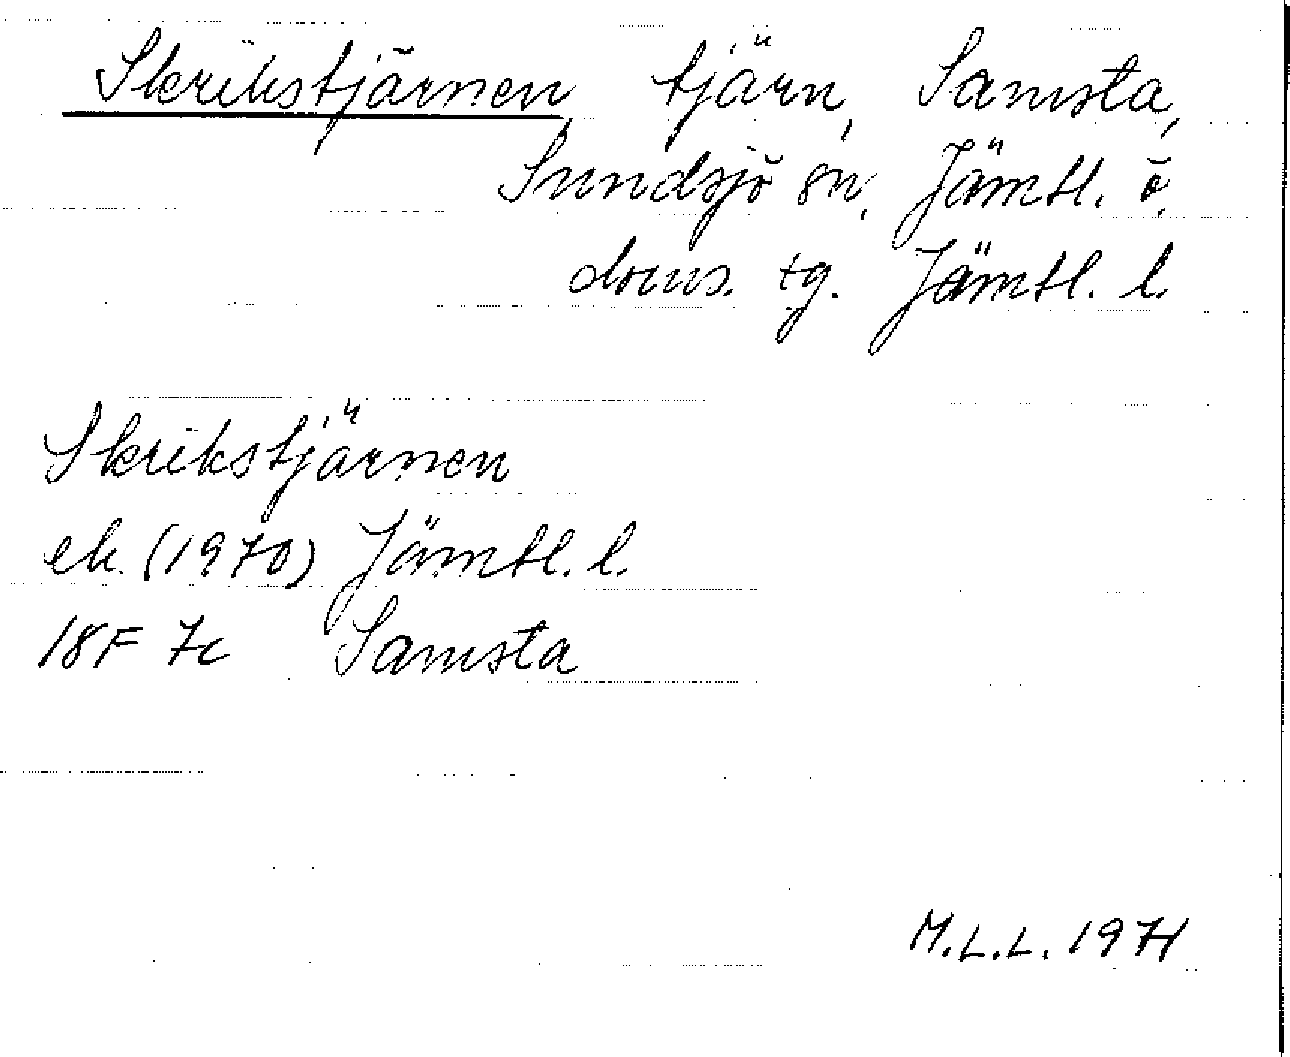 Skrikstjärnen, tjärn, Samsta,
Sundsjö sn, Jämtl. ö.
doms. tg. Jämtl. l.
Skrikstjärnen
ek. (1970) Jämtl. l.
18F 7c Samsta
M.L.L. 1971